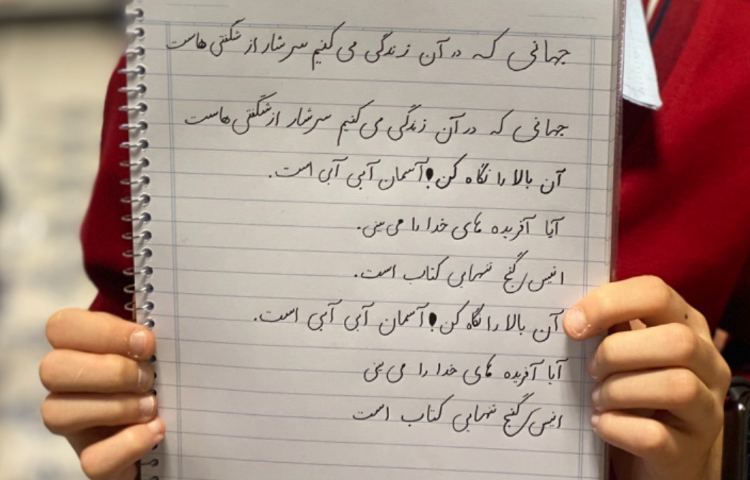 جهانی که در آن زندگی می کنیم سرشار از شگفتی هاست
جهانی که در آن زندگی می کنیم سرشار از شگفتی هاست
آن بالا را نگاه کن! آسمان آبی آبی است.
آیا آفریده های خدا را می بینی.
انیس کنج تنهایی کتاب است.
آن بالا را نگاه کن! آسمان آبی آبی است.
آیا آفریده های خدا را می بینی
انیس کنج تنهایی کتاب است